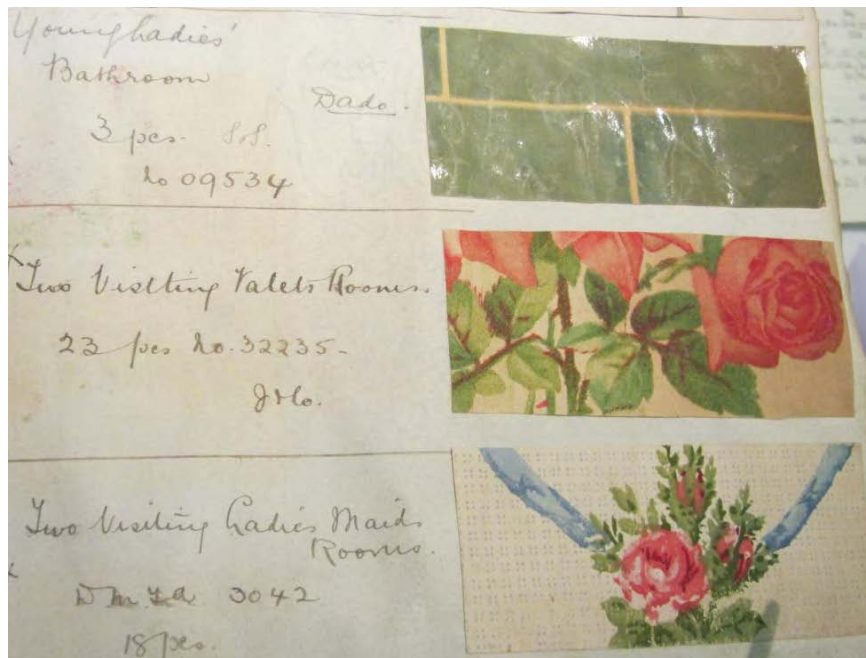 Young Ladies'
Bathroom
Dado.
3 pcs. S.S.
No 09534
Two Visiting Valets Rooms.
23 pcs No. 32235-
J & Co.
Two Visiting Ladies Maids
Rooms.
3042
18 pcs.